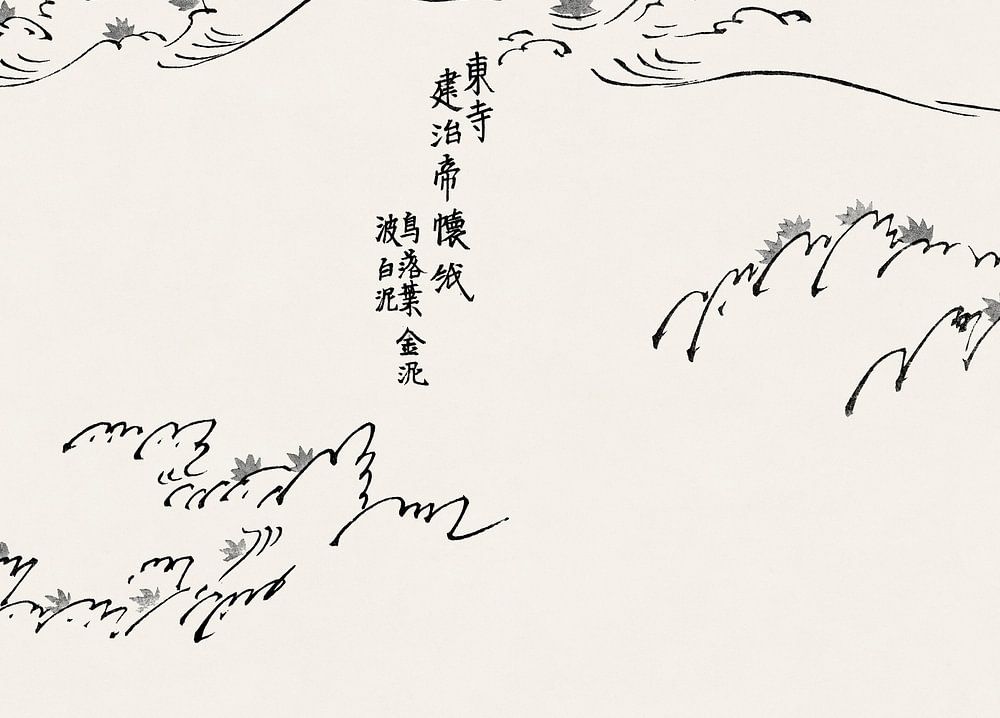 東寺
建治帝懐紙
鳥落葉 金泥
波白泥